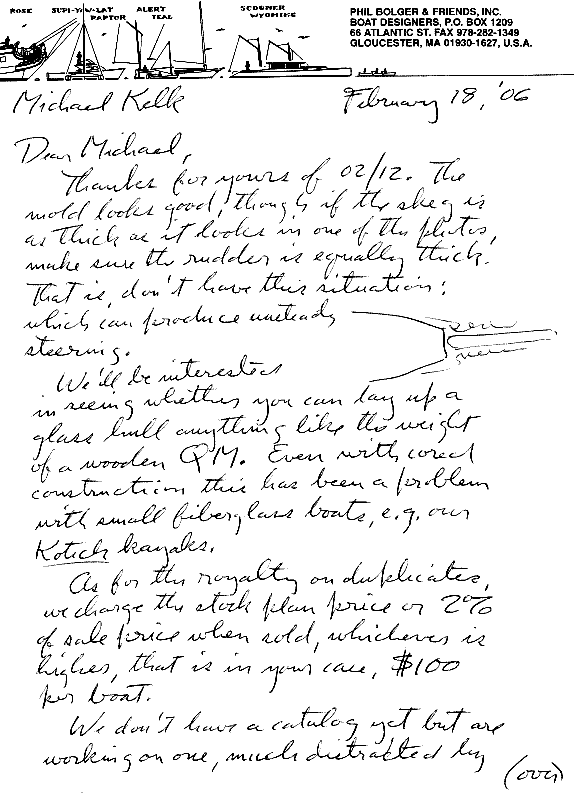 ROSE
ALERT
SCHUNER
RAPTOR
TEAL
WYOMING
PHIL BOLGER & FRIENDS, INC.
BOAT DESIGNERS, P.O. BOX 1209
66 ATLANTIC ST. FAX 978-282-1349
GLOUCESTER, MA 01930-1627, U.S.A.
Michael Kelk
February 18, '06
Dear Michael,
Thanks for yours of 02/12. The
mold looks good, though if the skeg is
as thick as it looks in one of the photos,
make sure the rudder is equally thick.
That is, don't have this situation:
which can produce unsteady
steering.
We'll be interested
in seeing whether you can lay up a
glass hull anything like the weight
of a wooden QM. Even with cored
construction this has been a problem
with small fiberglass boats, e.g. our
Kotick kayaks.
As for the royalty on duplicates,
we charge the stock plan price or 2%
of sale price when sold, whichever is
higher, that is in your case, $100
per boat.
We don't have a catalog yet but are
working on one, much distracted by
(over)